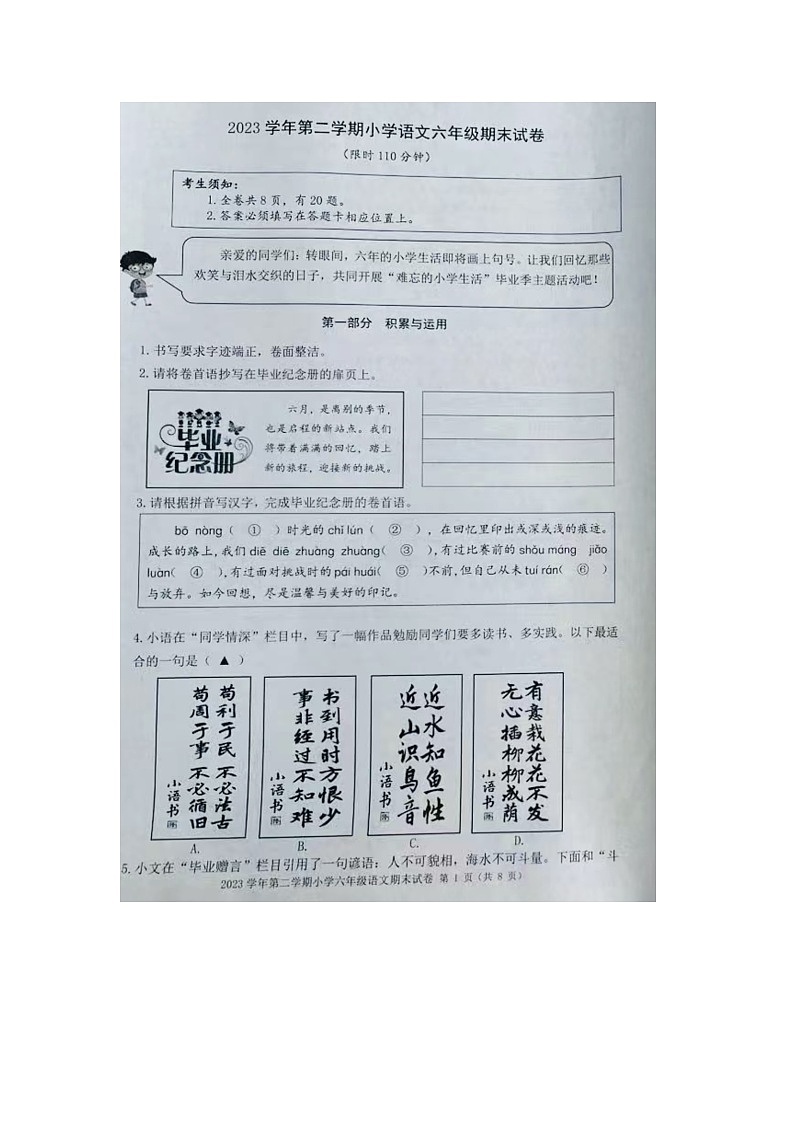 2023 学年第二学期小学语文六年级期末试卷
（限时 110 分钟）
考生须知：
1. 全卷共 8 页，有 20 题。
2. 答案必须填写在答题卡相应位置上。
亲爱的同学们：转眼间，六年的小学生活即将画上句号。让我们回忆那些
欢笑与泪水交织的日子，共同开展“难忘的小学生活”毕业季主题活动吧！
第一部分　积累与运用
1. 书写要求字迹端正，卷面整洁。
2. 请将卷首语抄写在毕业纪念册的扉页上。
毕业
纪念册
六月，是离别的季节，
也是启程的新站点。我们
将带着满满的回忆，踏上
新的旅程，迎接新的挑战。
3. 请根据拼音写汉字，完成毕业纪念册的卷首语。
bō nòng（ ① ）时光的 chǐ lún（ ② ），在回忆里印出或深或浅的痕迹。
成长的路上，我们 diē diē zhuàng zhuàng（ ③ ），有过比赛前的 shǒu máng jiǎo
luàn（ ④ ），有过面对挑战时的 pái huái（ ⑤ ）不前，但自己从未 tuí rán（ ⑥ ）
与放弃。如今回想，尽是温馨与美好的印记。
4. 小语在“同学情深”栏目中，写了一幅作品勉励同学们要多读书、多实践。以下最适
合的一句是（ ▲ ）
苟利于民 不必法古
苟周于事 不必循旧
小语书
A.
书到用时方恨少
事非经过不知难
小语书
B.
近水知鱼性
近山识鸟音
小语书
C.
有意栽花花不发
无心插柳柳成荫
小语书
D.
5. 小文在“毕业赠言”栏目引用了一句谚语：人不可貌相，海水不可斗量。下面和“斗
2023 学年第二学期小学六年级语文期末试卷 第 1 页（共 8 页）